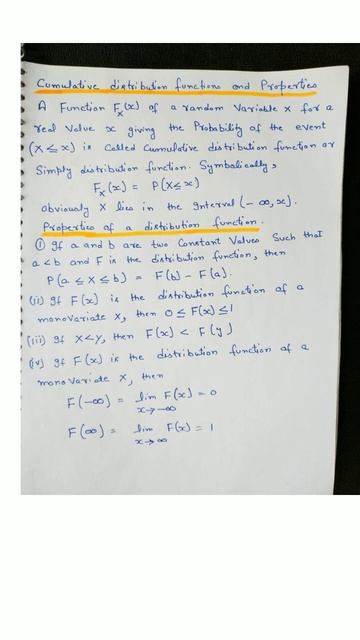 Cumulative distribution functions and Properties
A Function F_X(x) of a random Variable X for a
real Value x giving the Probability of the event
(X ≤ x) is called Cumulative distribution function or
Simply distribution function. Symbolically,
F_X(x) = P(X ≤ x)
obviously X lies in the Interval (-∞, x].
Properties of a distribution function.
(i) If a and b are two Constant Values Such that
a < b and F is the distribution function, then
P(a ≤ X ≤ b) = F(b) - F(a).
(ii) If F(x) is the distribution function of a
monovariate X, then 0 ≤ F(x) ≤ 1
(iii) If X < Y, then F(x) < F(y)
(iv) If F(x) is the distribution function of a
mono Variate X, then
F(-∞) = lim F(x) = 0
x→-∞
F(∞) = lim F(x) = 1
x→∞